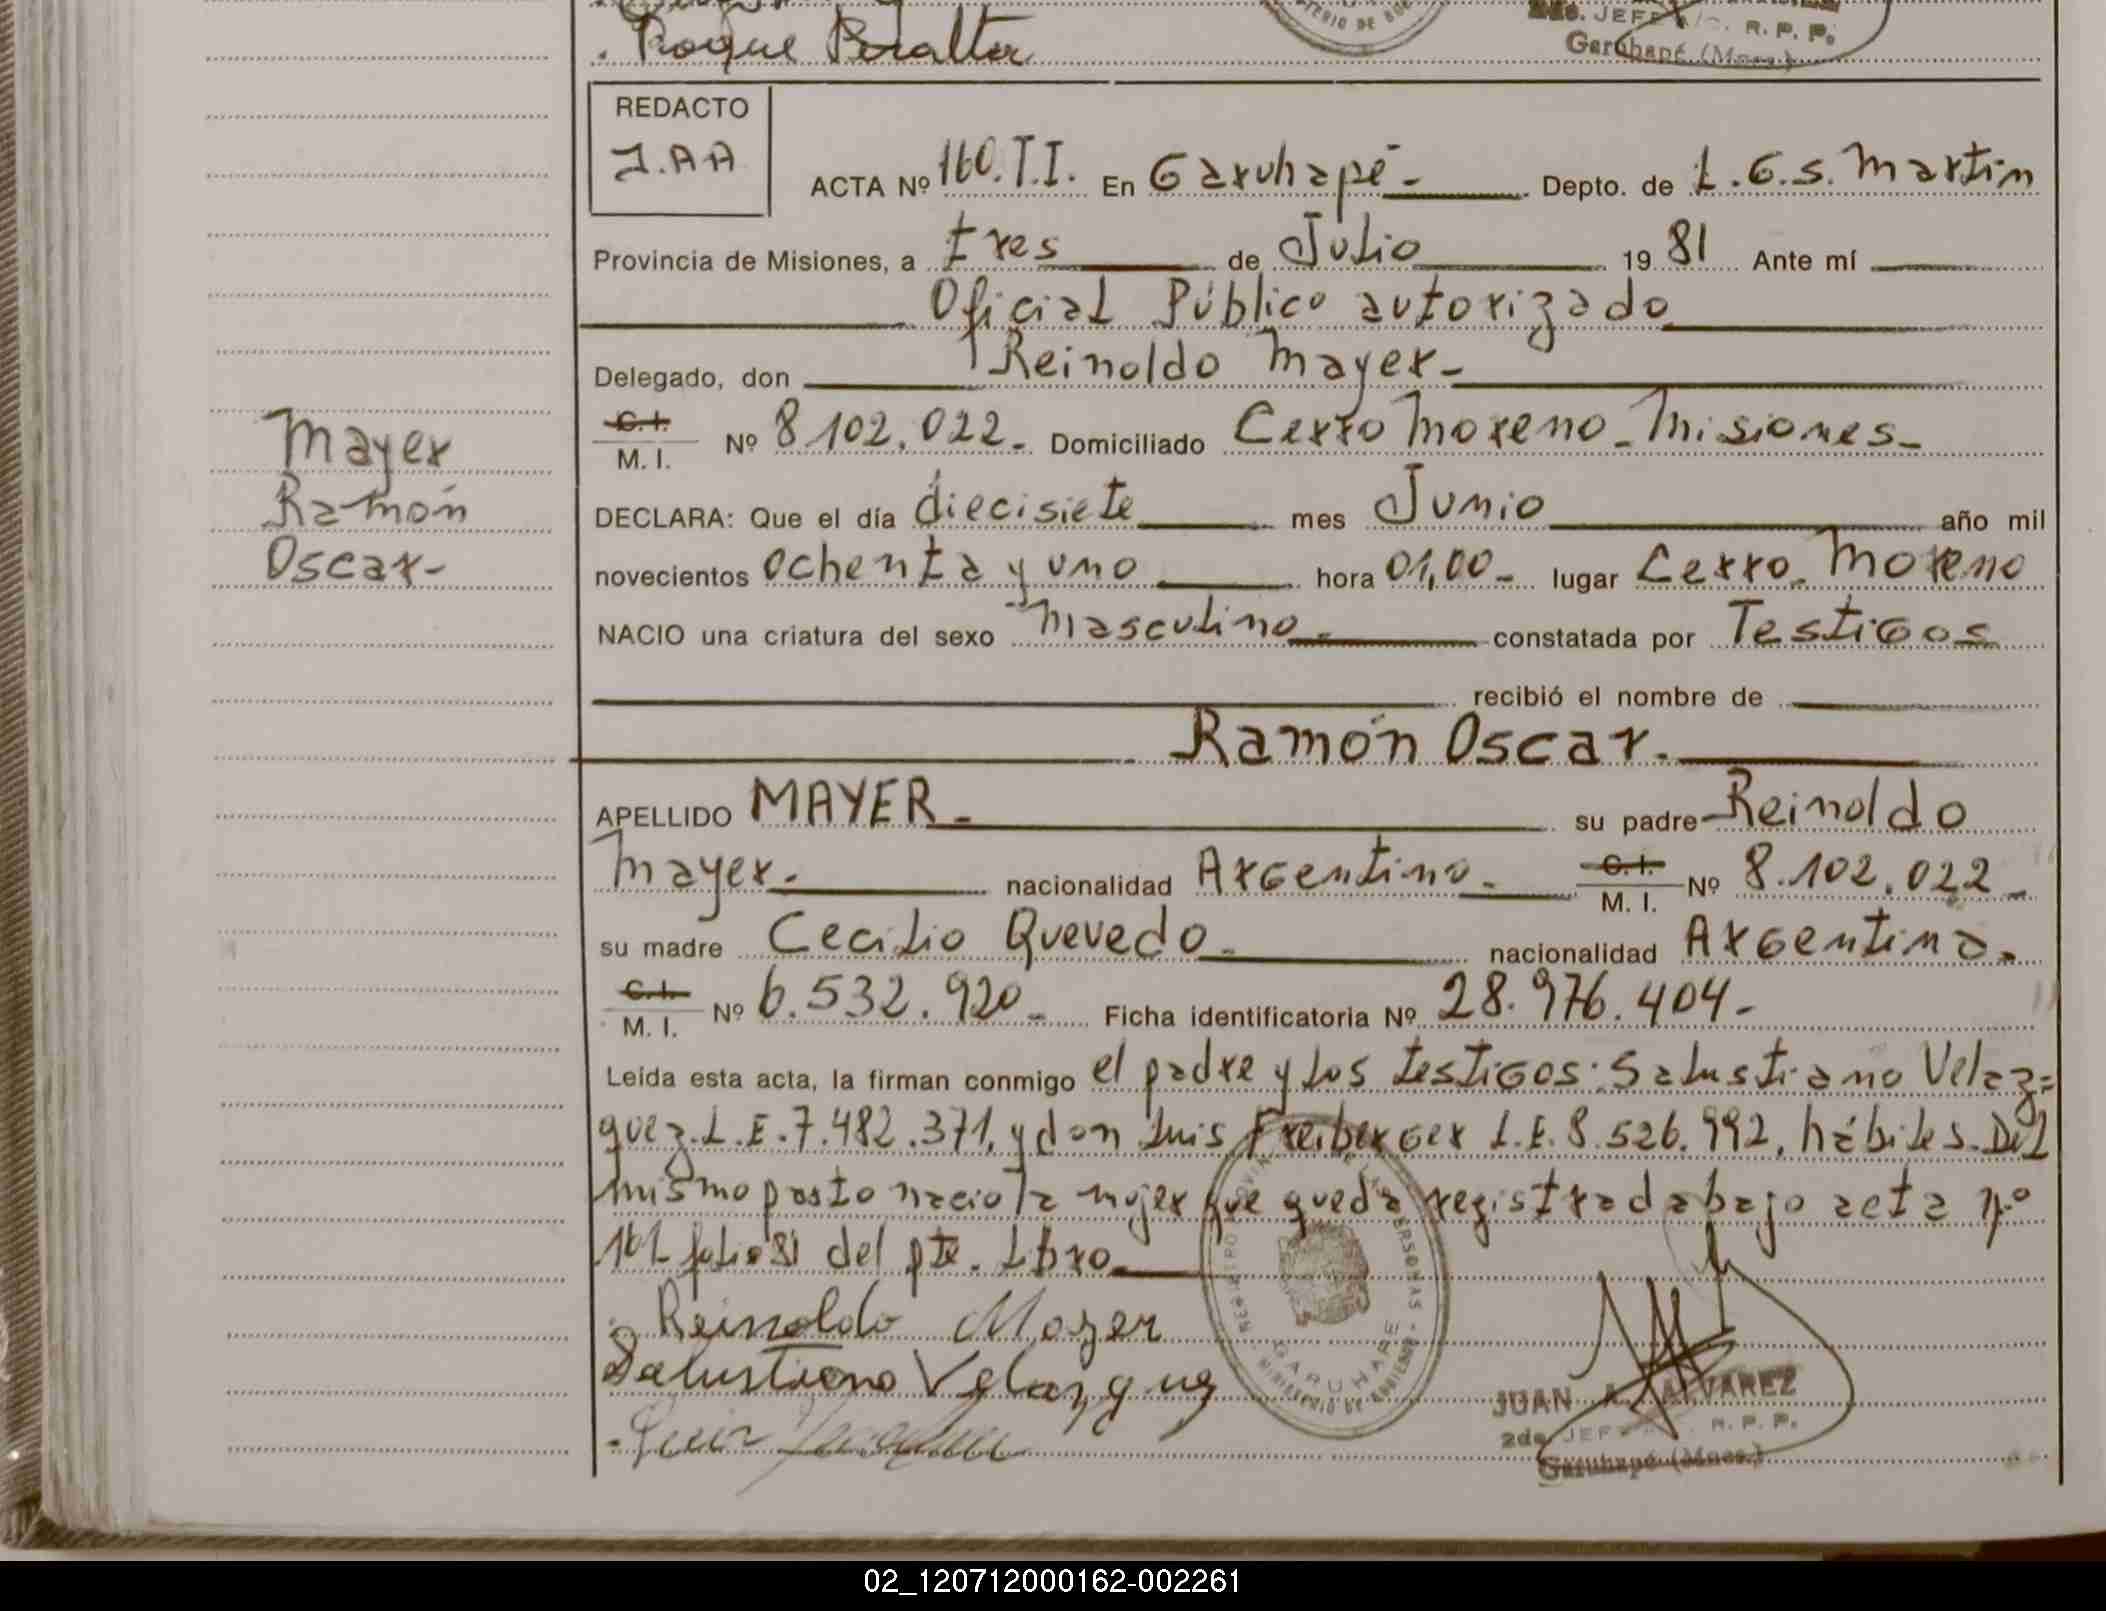 Roque Peralta
TERIO DE
2do. JEFE R. P. P.
Garuhapé (Mnes.)
REDACTO
J.A A
ACTA Nº 160.T.I. En Garuhapé - Depto. de L.G.S. Martin
Provincia de Misiones, a tres de Julio 19 81 Ante mí
Oficial Público autorizado
Delegado, don Reinoldo Mayer-
C.I.
M. I. Nº 8.102.022.- Domiciliado Cerro Moreno - Misiones-
Mayer
Ramón
Oscar-
DECLARA: Que el día diecisiete mes Junio año mil
novecientos ochenta y uno hora 01,00- lugar Cerro Moreno
NACIO una criatura del sexo Masculino- constatada por Testigos
recibió el nombre de
Ramón Oscar.
APELLIDO MAYER- su padre Reinoldo
Mayer- nacionalidad Argentino- C.I.
M. I. Nº 8.102.022-
su madre Cecilio Quevedo- nacionalidad Argentina-
C.I.
M. I. Nº 6.532.920- Ficha identificatoria Nº 28.976.404-
Leída esta acta, la firman conmigo el padre y los testigos: Salustiano Velaz=
quez L.E. 7.482.371, y don Luis Freiberger L.E. 8.526.992, hábiles. Del
mismo parto nacio la mujer que queda registrada bajo acta nº
161 folio 81 del pte. Libro
Reinoldo Mayer
Salustiano Velazquez
Luis
GARUHAPE
JUAN A. ALVAREZ
2do. JEFE R. P. P.
Garuhapé (Mnes.)
02_120712000162-002261